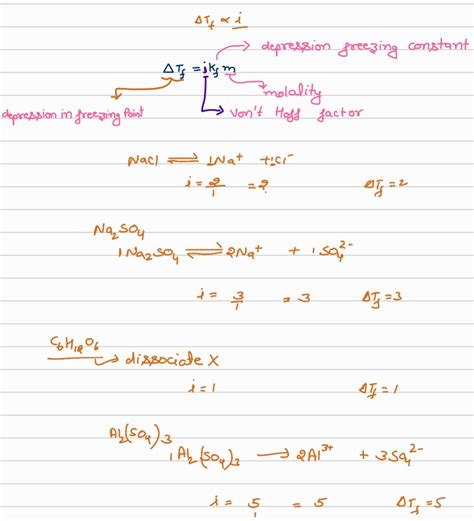 ΔT_f ∝ i
depression freezing constant
ΔT_f = i k_f m
molality
depression in freezing Point
Von't Hoff factor
NaCl ⇌ 1Na⁺ + 1Cl⁻
i = 2/1 = 2 ΔT_f = 2
Na₂SO₄
1Na₂SO₄ ⇌ 2Na⁺ + 1SO₄²⁻
i = 3/1 = 3 ΔT_f = 3
C₆H₁₂O₆
→ dissociate X
i = 1 ΔT_f = 1
Al₂(SO₄)₃
1Al₂(SO₄)₃ → 2Al³⁺ + 3SO₄²⁻
i = 5/1 = 5 ΔT_f = 5